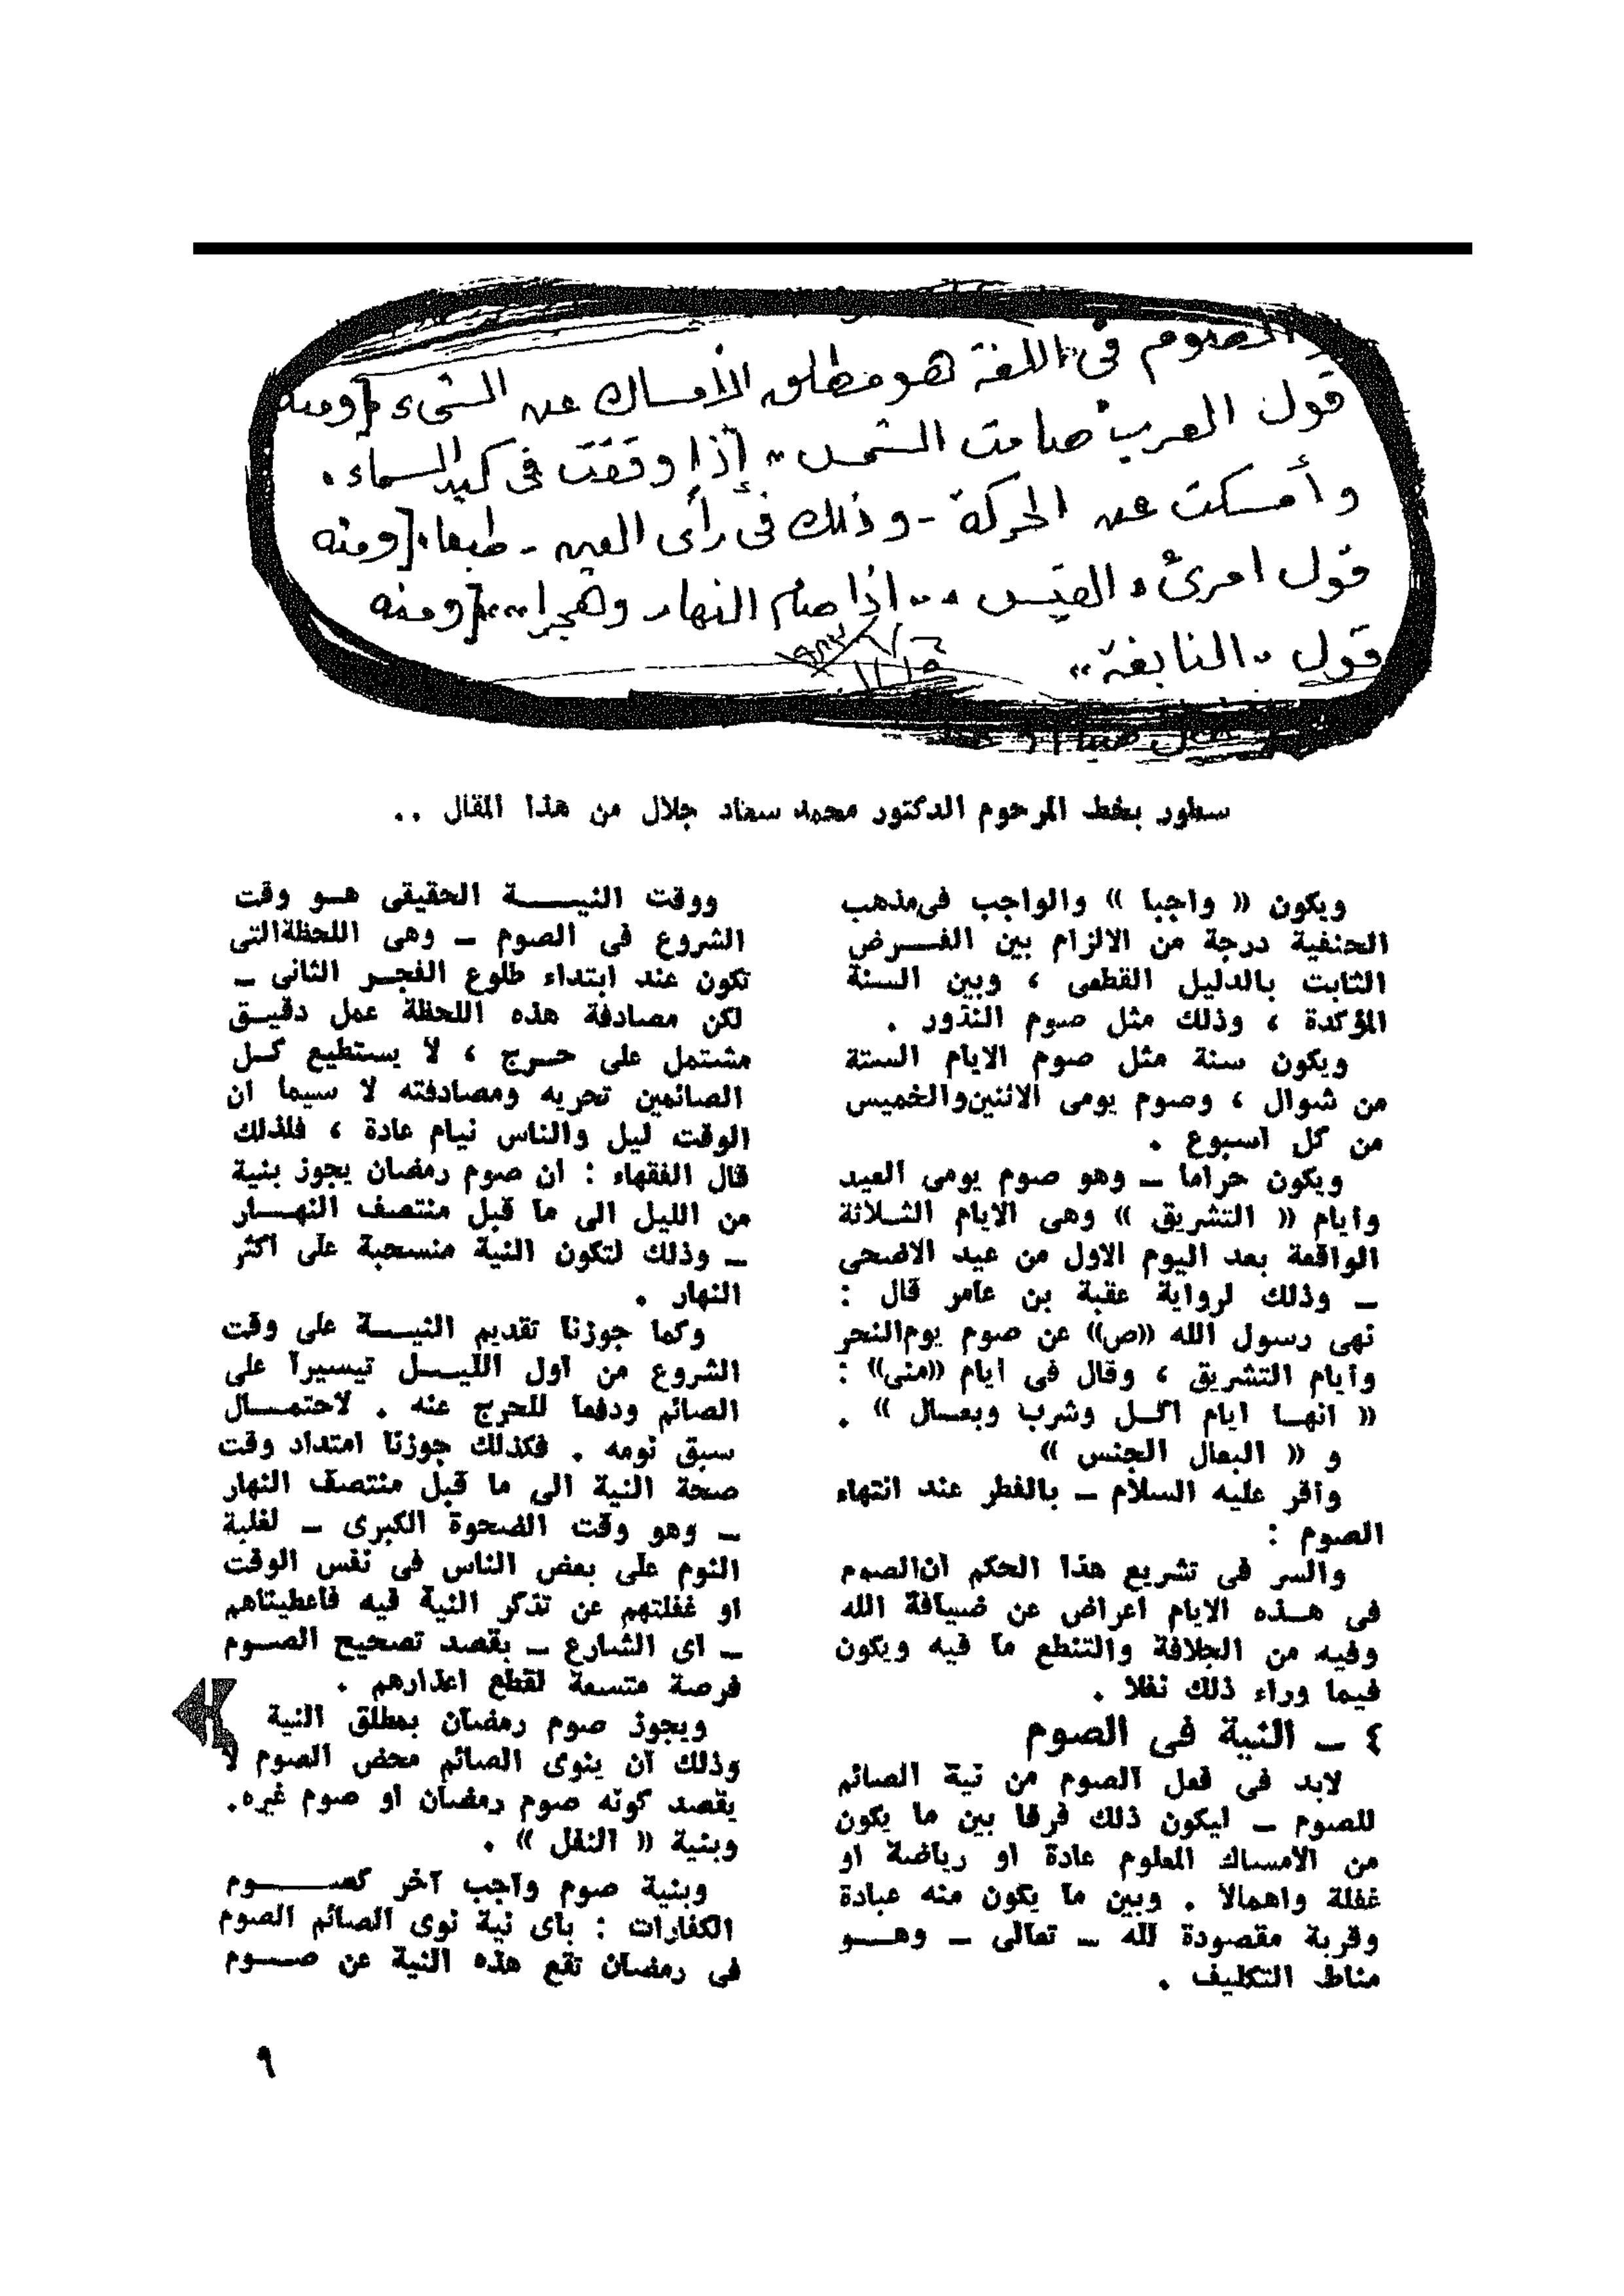 الصوم فى اللغة هو مطلق الإمساك عن الشىء [ومنه
قول العرب "صامت الشمس" إذا وقفت فى كبد السماء،
وأمسكت عن الحركة - وذلك فى رأى العين - طبعا.[ومنه
قول امرئ القيس ".. اذا صام النهار وهجرا".[ومنه
قول "النابغة"
سطور بخط المرحوم الدكتور محمد سعاد جلال من هذا المقال ..
ويكون « واجبا » والواجب فى مذهب
الحنفية درجة من الالزام بين الفـــرض
الثابت بالدليل القطعى ، وبين السنة
المؤكدة ، وذلك مثل صوم النذور .
ويكون سنة مثل صوم الايام الستة
من شوال ، وصوم يومى الاثنين والخميس
من كل اسبوع .
ويكون حراما – وهو صوم يومى العيد
وأيام « التشريق » وهى الايام الثــلاثة
الواقعة بعد اليوم الاول من عيد الاضحى
– وذلك لرواية عقبة بن عامر قال :
نهى رسول الله «ص» عن صوم يوم النحر
وأيام التشريق ، وقال فى ايام «منى» :
« انهــا ايام اكــل وشرب وبعــال » .
و « البعال الجنس »
وأقر عليه السلام – بالفطر عند انتهاء
الصوم :
والسر فى تشريع هذا الحكم ان الصوم
فى هــذه الايام اعراض عن ضيافة الله
وفيه من الجلافة والتنطع ما فيه ويكون
فيما وراء ذلك نفلا .
٤ – النية فى الصوم
لابد فى فعل الصوم من نية الصائم
للصوم – ليكون ذلك فرقا بين ما يكون
من الامساك المعلوم عادة او رياضة او
غفلة واهمالا . وبين ما يكون منه عبادة
وقربة مقصودة لله – تعالى – وهـــو
مناط التكليف .
ووقت النيـــــة الحقيقى هــو وقت
الشروع فى الصوم – وهى اللحظة التى
تكون عند ابتداء طلوع الفجــر الثانى –
لكن مصادفة هذه اللحظة عمل دقيــق
مشتمل على حــرج ، لا يستطيع كــل
الصائمين تحريه ومصادفته لا سيما ان
الوقت ليل والناس نيام عادة ، فلذلك
قال الفقهاء : ان صوم رمضان يجوز بنية
من الليل الى ما قبل منتصف النهــار
– وذلك لتكون النية منسحبة على اكثر
النهار .
وكما جوزنا تقديم النيـــة على وقت
الشروع من أول الليـــل تيسيرا على
الصائم ودفعا للحرج عنه . لاحتمــال
سبق نومه . فكذلك جوزنا امتداد وقت
صحة النية الى ما قبل منتصف النهار
– وهو وقت الضحوة الكبرى – لغلبة
النوم على بعض الناس فى نفس الوقت
او غفلتهم عن تذكر النية فيه فأعطيناهم
– اى الشارع – بقصد تصحيح الصــوم
فرصة متسعة لقطع اعذارهم .
ويجوز صوم رمضان بمطلق النية
وذلك أن ينوى الصائم محض الصوم لا
يقصد كونه صوم رمضان او صوم غيره.
وبنية « النفل » .
وبنية صوم واجب آخر كصـــــوم
الكفارات : باى نية نوى الصائم الصوم
فى رمضان تقع هذه النية عن صــــوم
٩